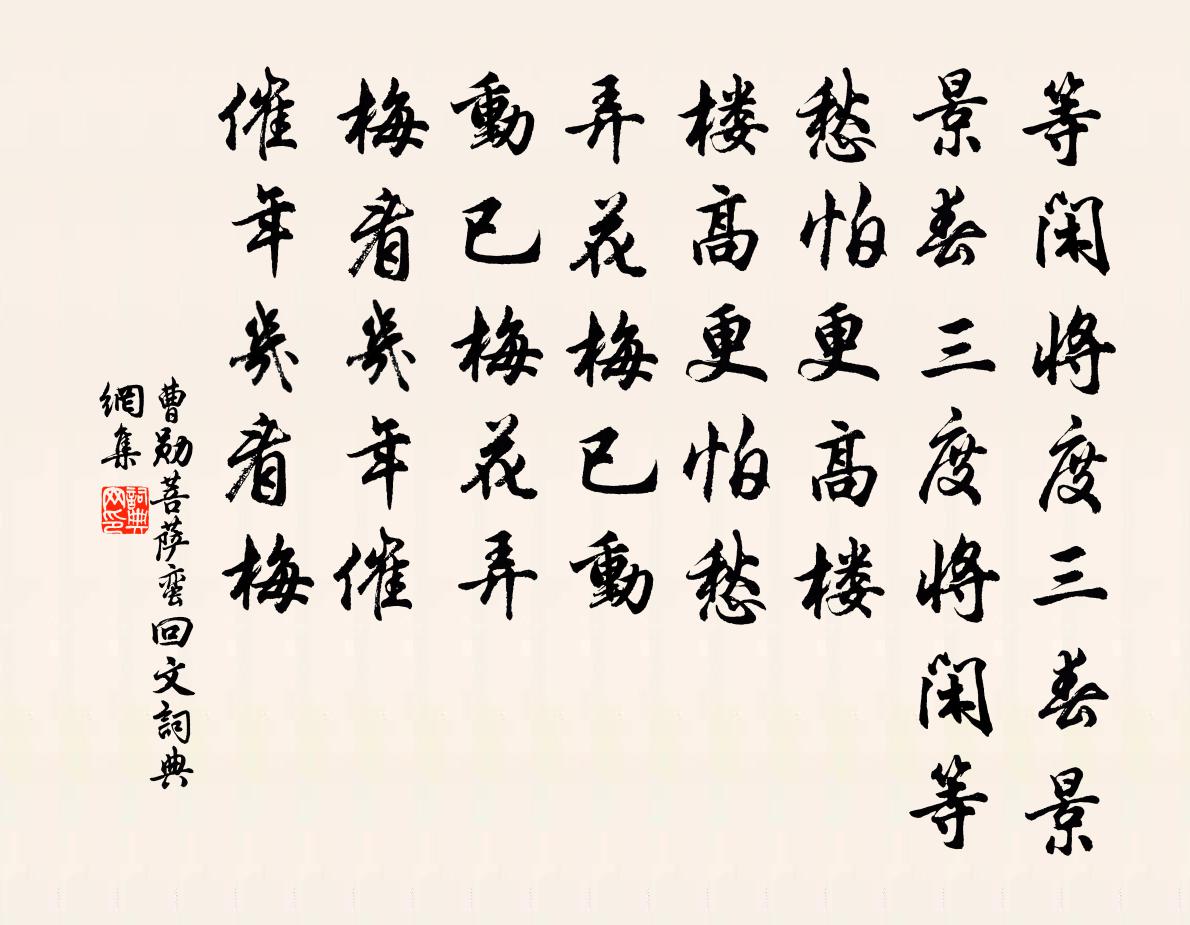 等闲將度三春景
景春三度將闲等
愁怕更高楼
楼高更怕愁
弄花梅已動
動已梅花弄
梅看幾年催
催年幾看梅
曹勛菩薩蛮回文詞典
網集
詞典
网印